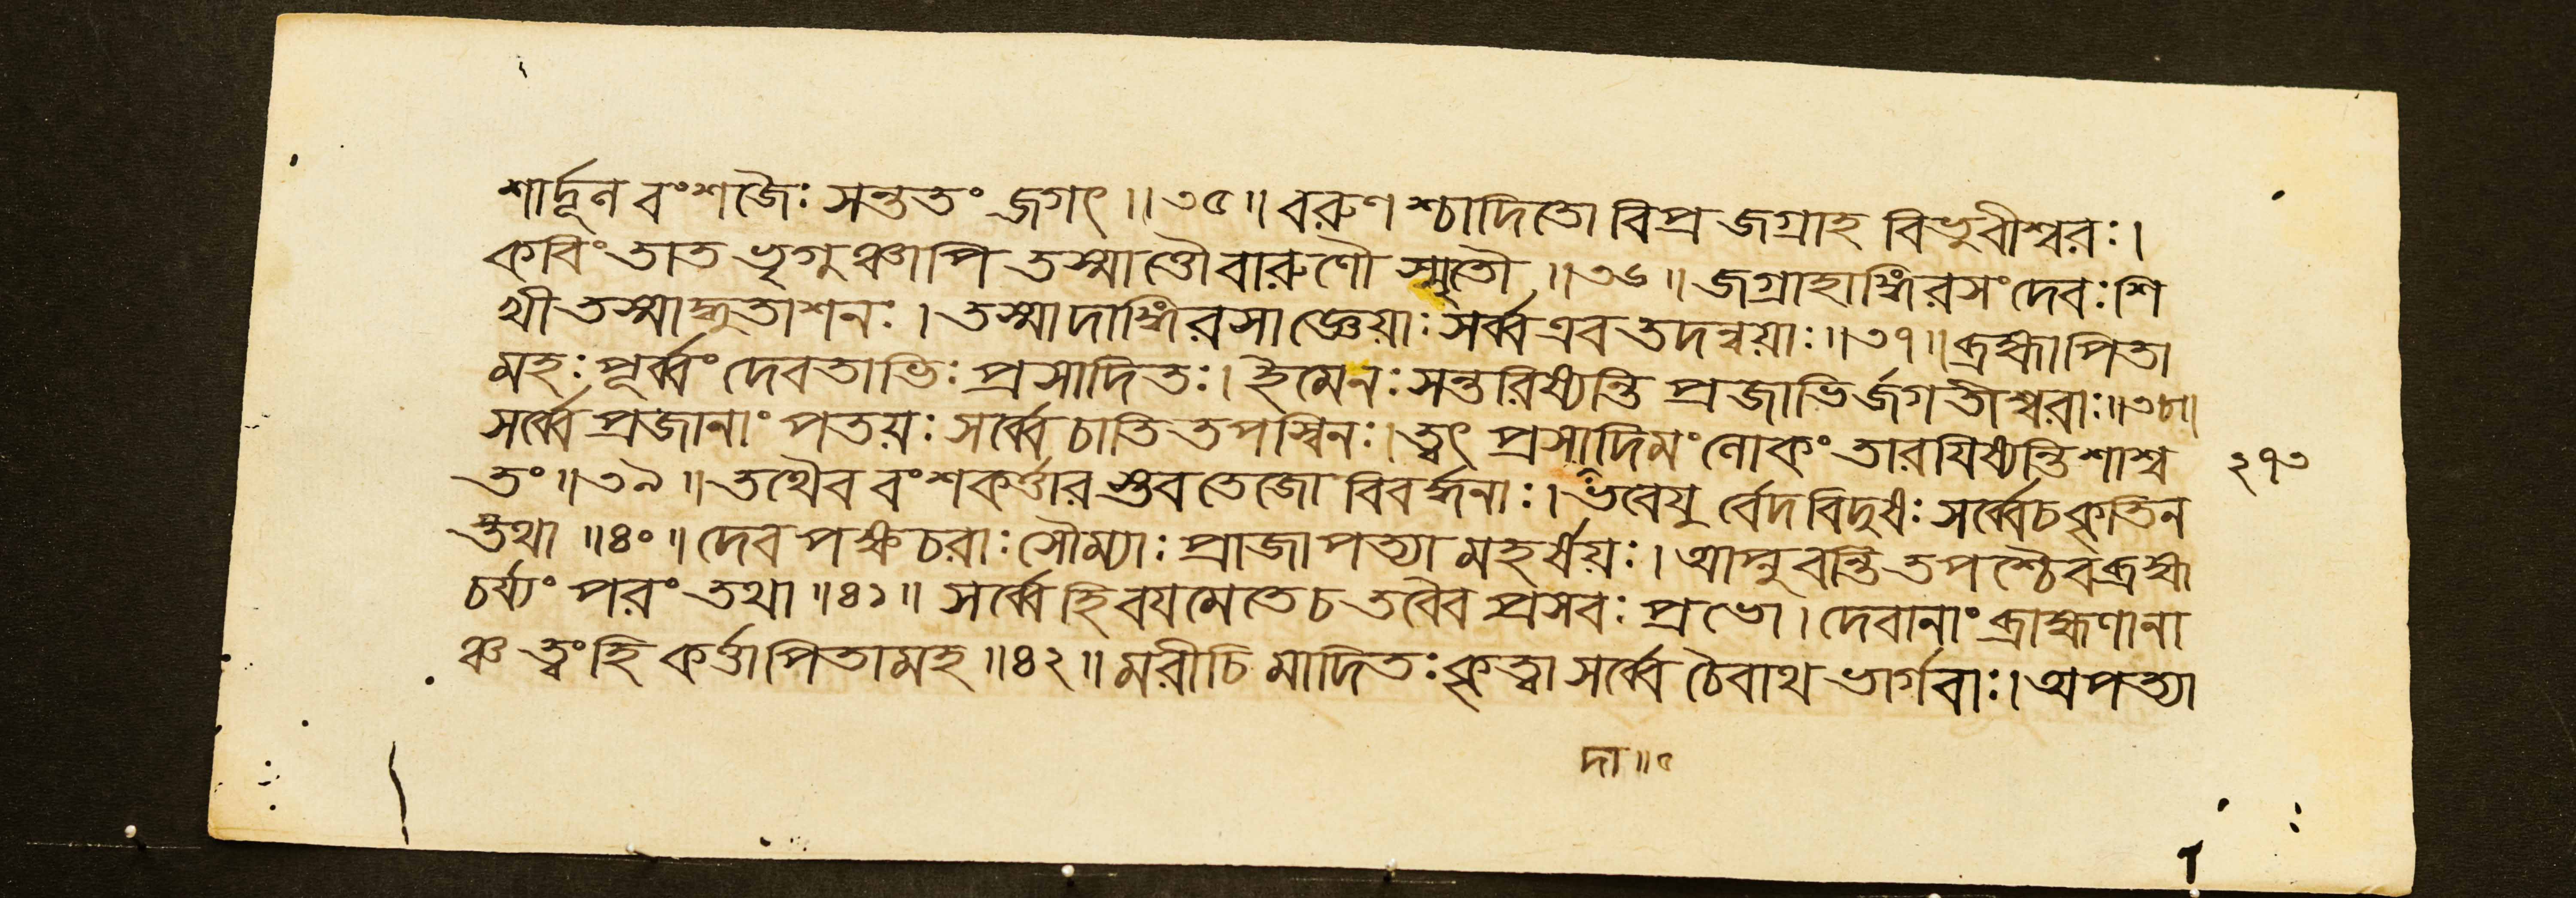 শার্দ্দূল বংশজৈঃ সন্ততং জগৎ ॥৩৫॥ বরুণ শ্চাদিতো বিপ্র জগ্রাহ বিভুবীশ্বরঃ।
কবিং তাত ভৃগুঞ্চাপি তস্মাত্তৌ বারুণৌ স্মৃতৌ ॥৩৬॥ জগ্রাহাঙ্গিরসং দেবঃ শি
খী তস্মাদ্ধুতাশনঃ। তস্মাদাঙ্গিরসা জ্ঞেয়াঃ সর্ব্ব এব তদন্বয়াঃ ॥৩৭॥ ব্রহ্মা পিতা
মহঃ পূর্ব্বং দেবতাভিঃ প্রসাদিতঃ। ইমেনঃ সন্তরিষ্যন্তি প্রজাভির্জগতীশ্বরাঃ ॥৩৮॥
সর্ব্বে প্রজানাং পতয়ঃ সর্ব্বে চাতি তপস্বিনঃ। ত্বৎ প্রসাদিমং লোকং তারযিষ্যন্তি শাশ্ব
তং ॥৩৯॥ তথৈব বংশকর্ত্তার স্তব তেজো বিবর্দ্ধনাঃ। ভবেযু র্বেদবিদুষঃ সর্ব্বে চ কৃতিন
স্তথা ॥৪০॥ দেব পক্ষ চরাঃ সৌম্যাঃ প্রাজাপত্যা মহর্ষয়ঃ। আপ্নুবন্তি তপশ্চৈব ব্রহ্ম
চর্য্যং পরং তথা ॥৪১॥ সর্ব্বে হি বযমেতে চ তবৈব প্রসবঃ প্রভো। দেবানাং ব্রাহ্মণানা
ঞ্চ ত্বং হি কর্ত্তা পিতামহ ॥৪২॥ মরীচি মাদিতঃ কৃত্বা সর্ব্বে চৈবাথ ভার্গবাঃ। অপত্যা
২৭৩
দা॥৫